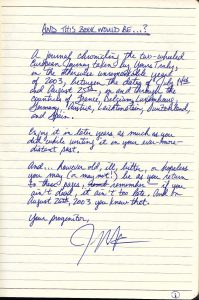 AND THIS BOOK WOULD BE...?
A journal chronicling the two-wheeled
European journey taken by Yours Truly,
in the otherwise unremarkable year
of 2003, between the dates of July 14th
and August 25th, in and through the
countries of France, Belgium, Luxembourg,
Germany, Austria, Liechtenstein, Switzerland,
and Spain.
Enjoy it in later years as much as you
did while writing it in your ever-more-
distant past.
And... however old, ill, bitter, or hopeless
you may (or may not!) be as you return
to these pages, remember — if you
ain't dead, it ain't too late. And on
August 26th, 2003 you knew that.
Your progenitor,
1